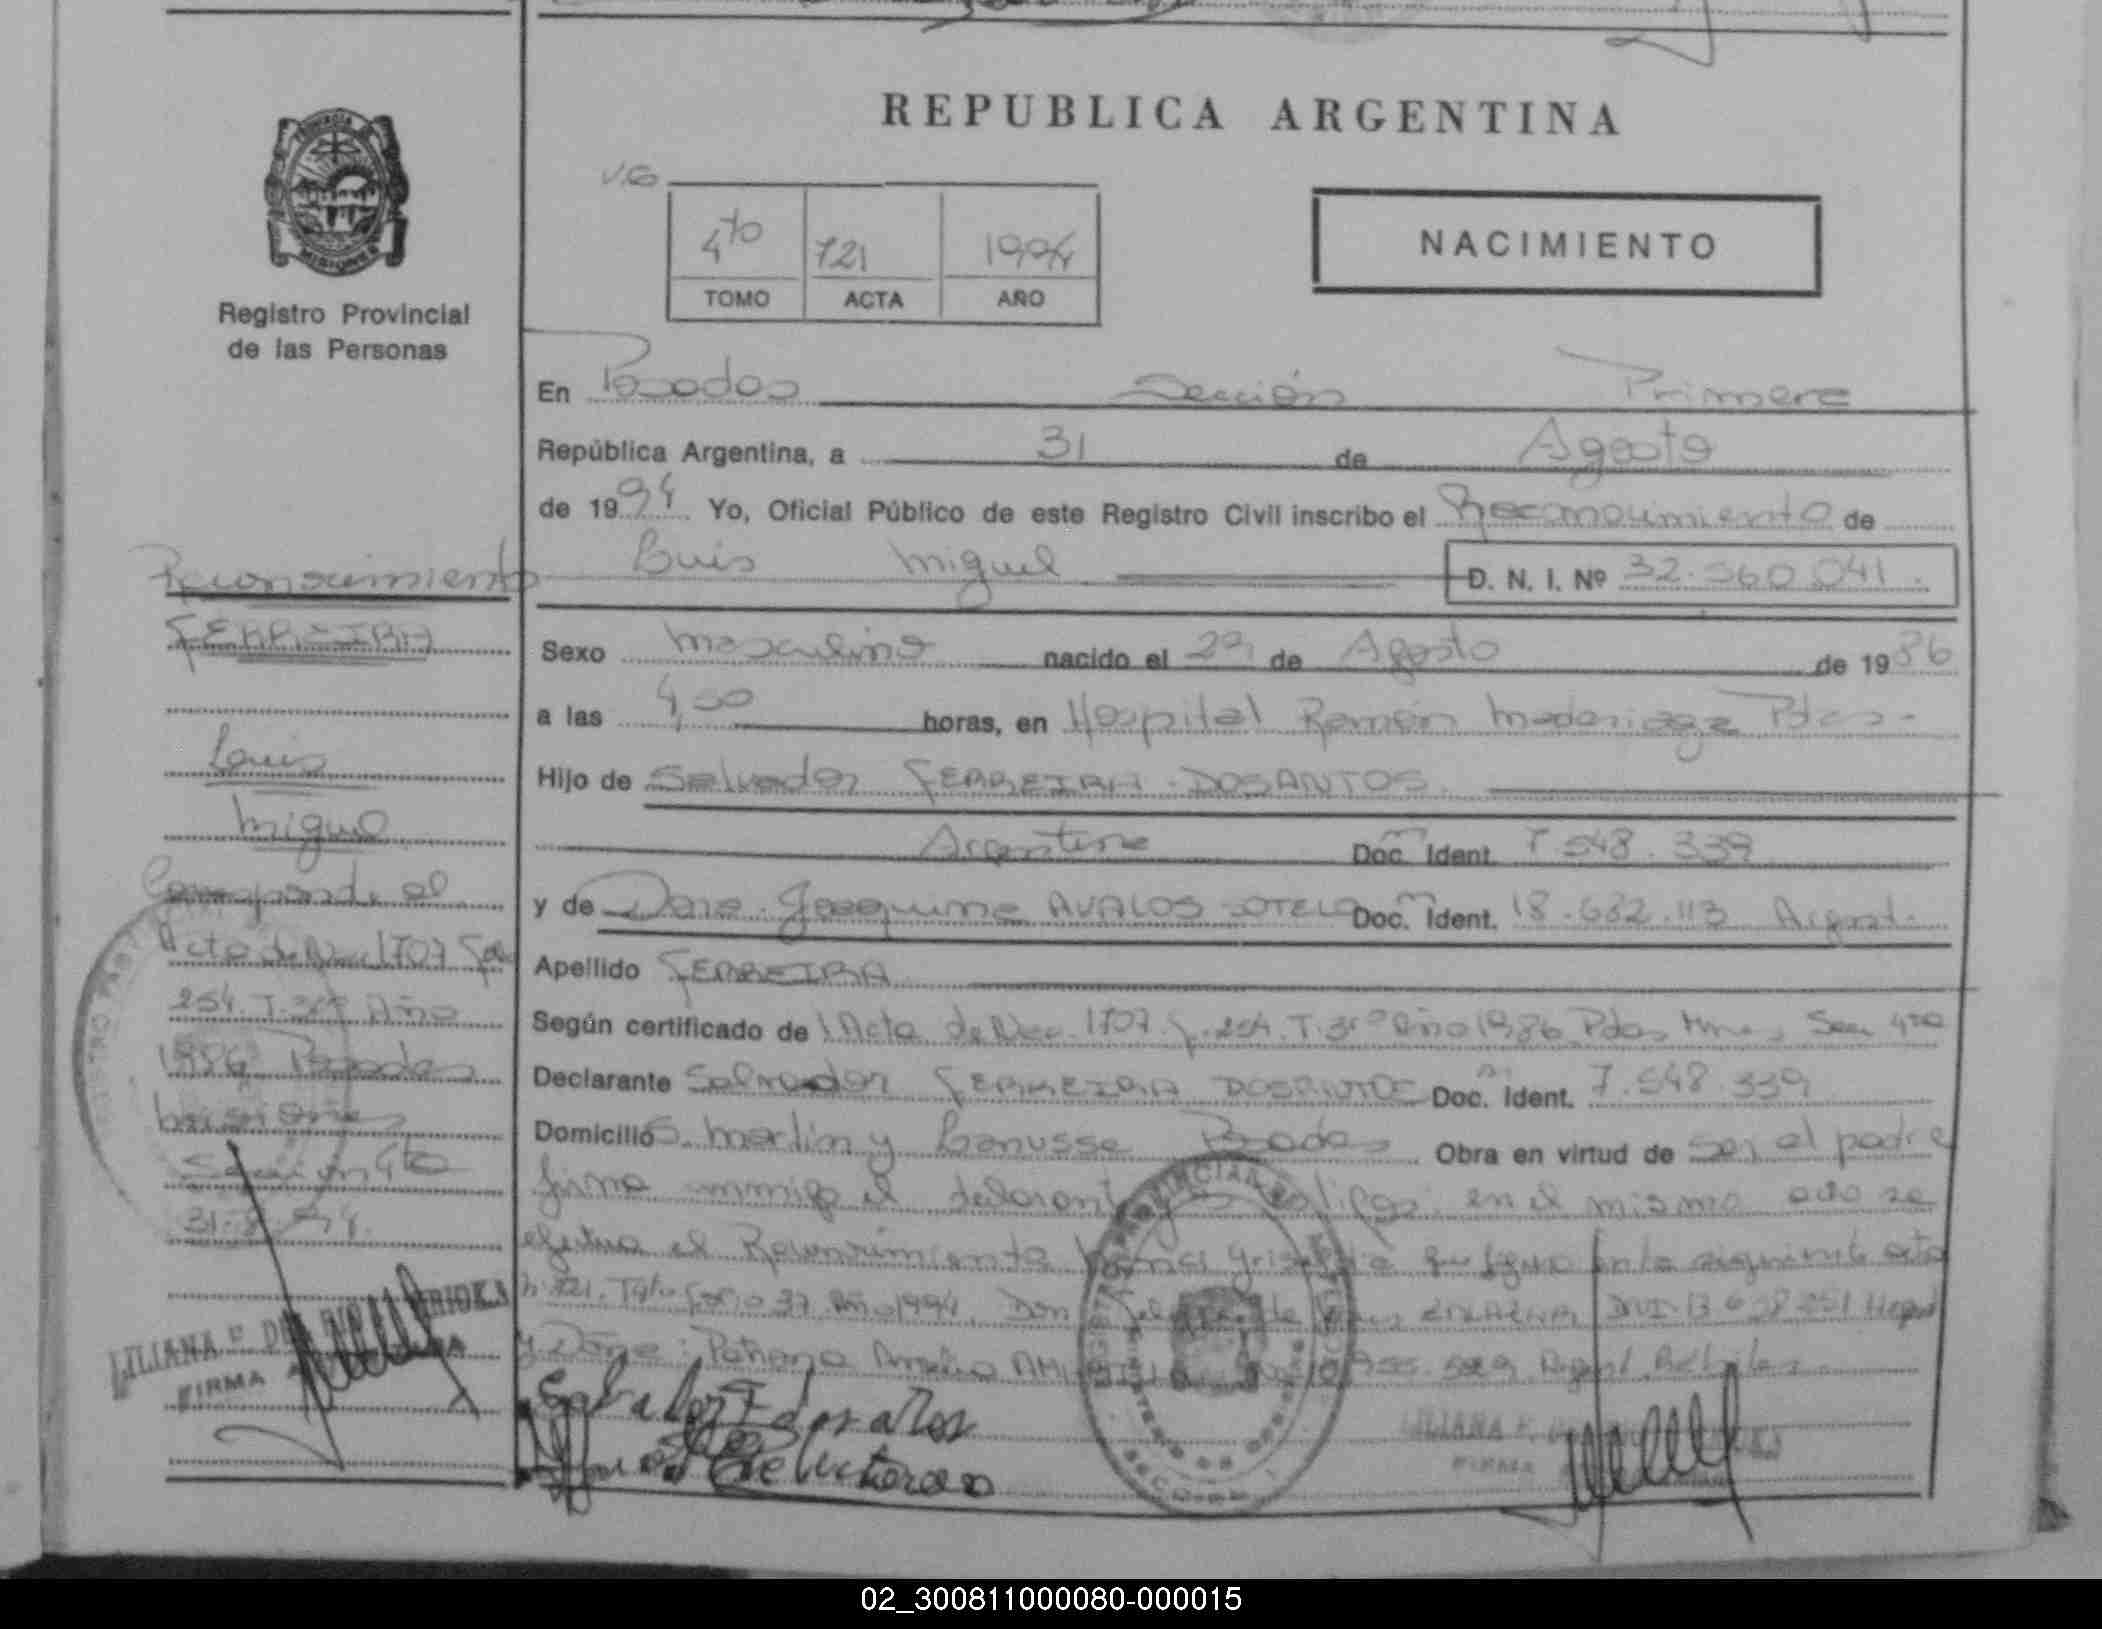 REPUBLICA ARGENTINA
NACIMIENTO
4to 721 1994
TOMO ACTA AÑO
Registro Provincial
de las Personas
En Posadas Sección Primera
República Argentina, a 31 de Agosto
de 1994 Yo, Oficial Público de este Registro Civil inscribo el Reconocimiento de
Luis Miguel D. N. I. Nº 32.560.041.
Sexo masculino nacido el 29 de Agosto de 1986
a las 4,50 horas, en Hospital Ramón Madariaga Pdas.-
Hijo de Salvador FERREIRA DOSANTOS.
Argentina Doc. Ident. 7.548.339
y de Doña Joaquina AVALOS SOTELO Doc. Ident. 18.682.113 Argent.
Apellido FERREIRA
Según certificado de Acta de Nac. 1707 F. 254. T. 3º Año 1986 Pdas Mnes Secc 4ta
Declarante Salvador FERREIRA DOSANTOS Doc. Ident. 7.548.339
Domicilio S. Martin y Lanusse Posadas Obra en virtud de ser el padre
firma conmigo el declarante y testigos: en el mismo acto se
efectua el Reconocimiento que sigue en la siguiente acta
Nº 721. T 4to Folio 37 Año 1994. Don
y Doña:
Reconocimiento
FERREIRA
Luis
Miguel
Corresponde al
Acta de Nac. 1707 Folio
254. T. 3º Año
1986 Posadas
Misiones
Sección 4ta
31.8.94.
LILIANA F.
FIRMA
LILIANA F.
FIRMA
02_300811000080-000015